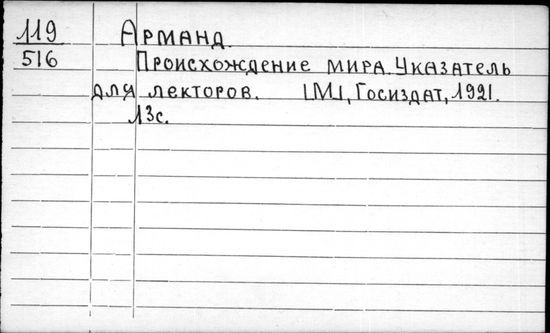 119 Арманд.
516 Происхождение мира. Указатель
для лекторов. [М], Госиздат, 1921.
13с.